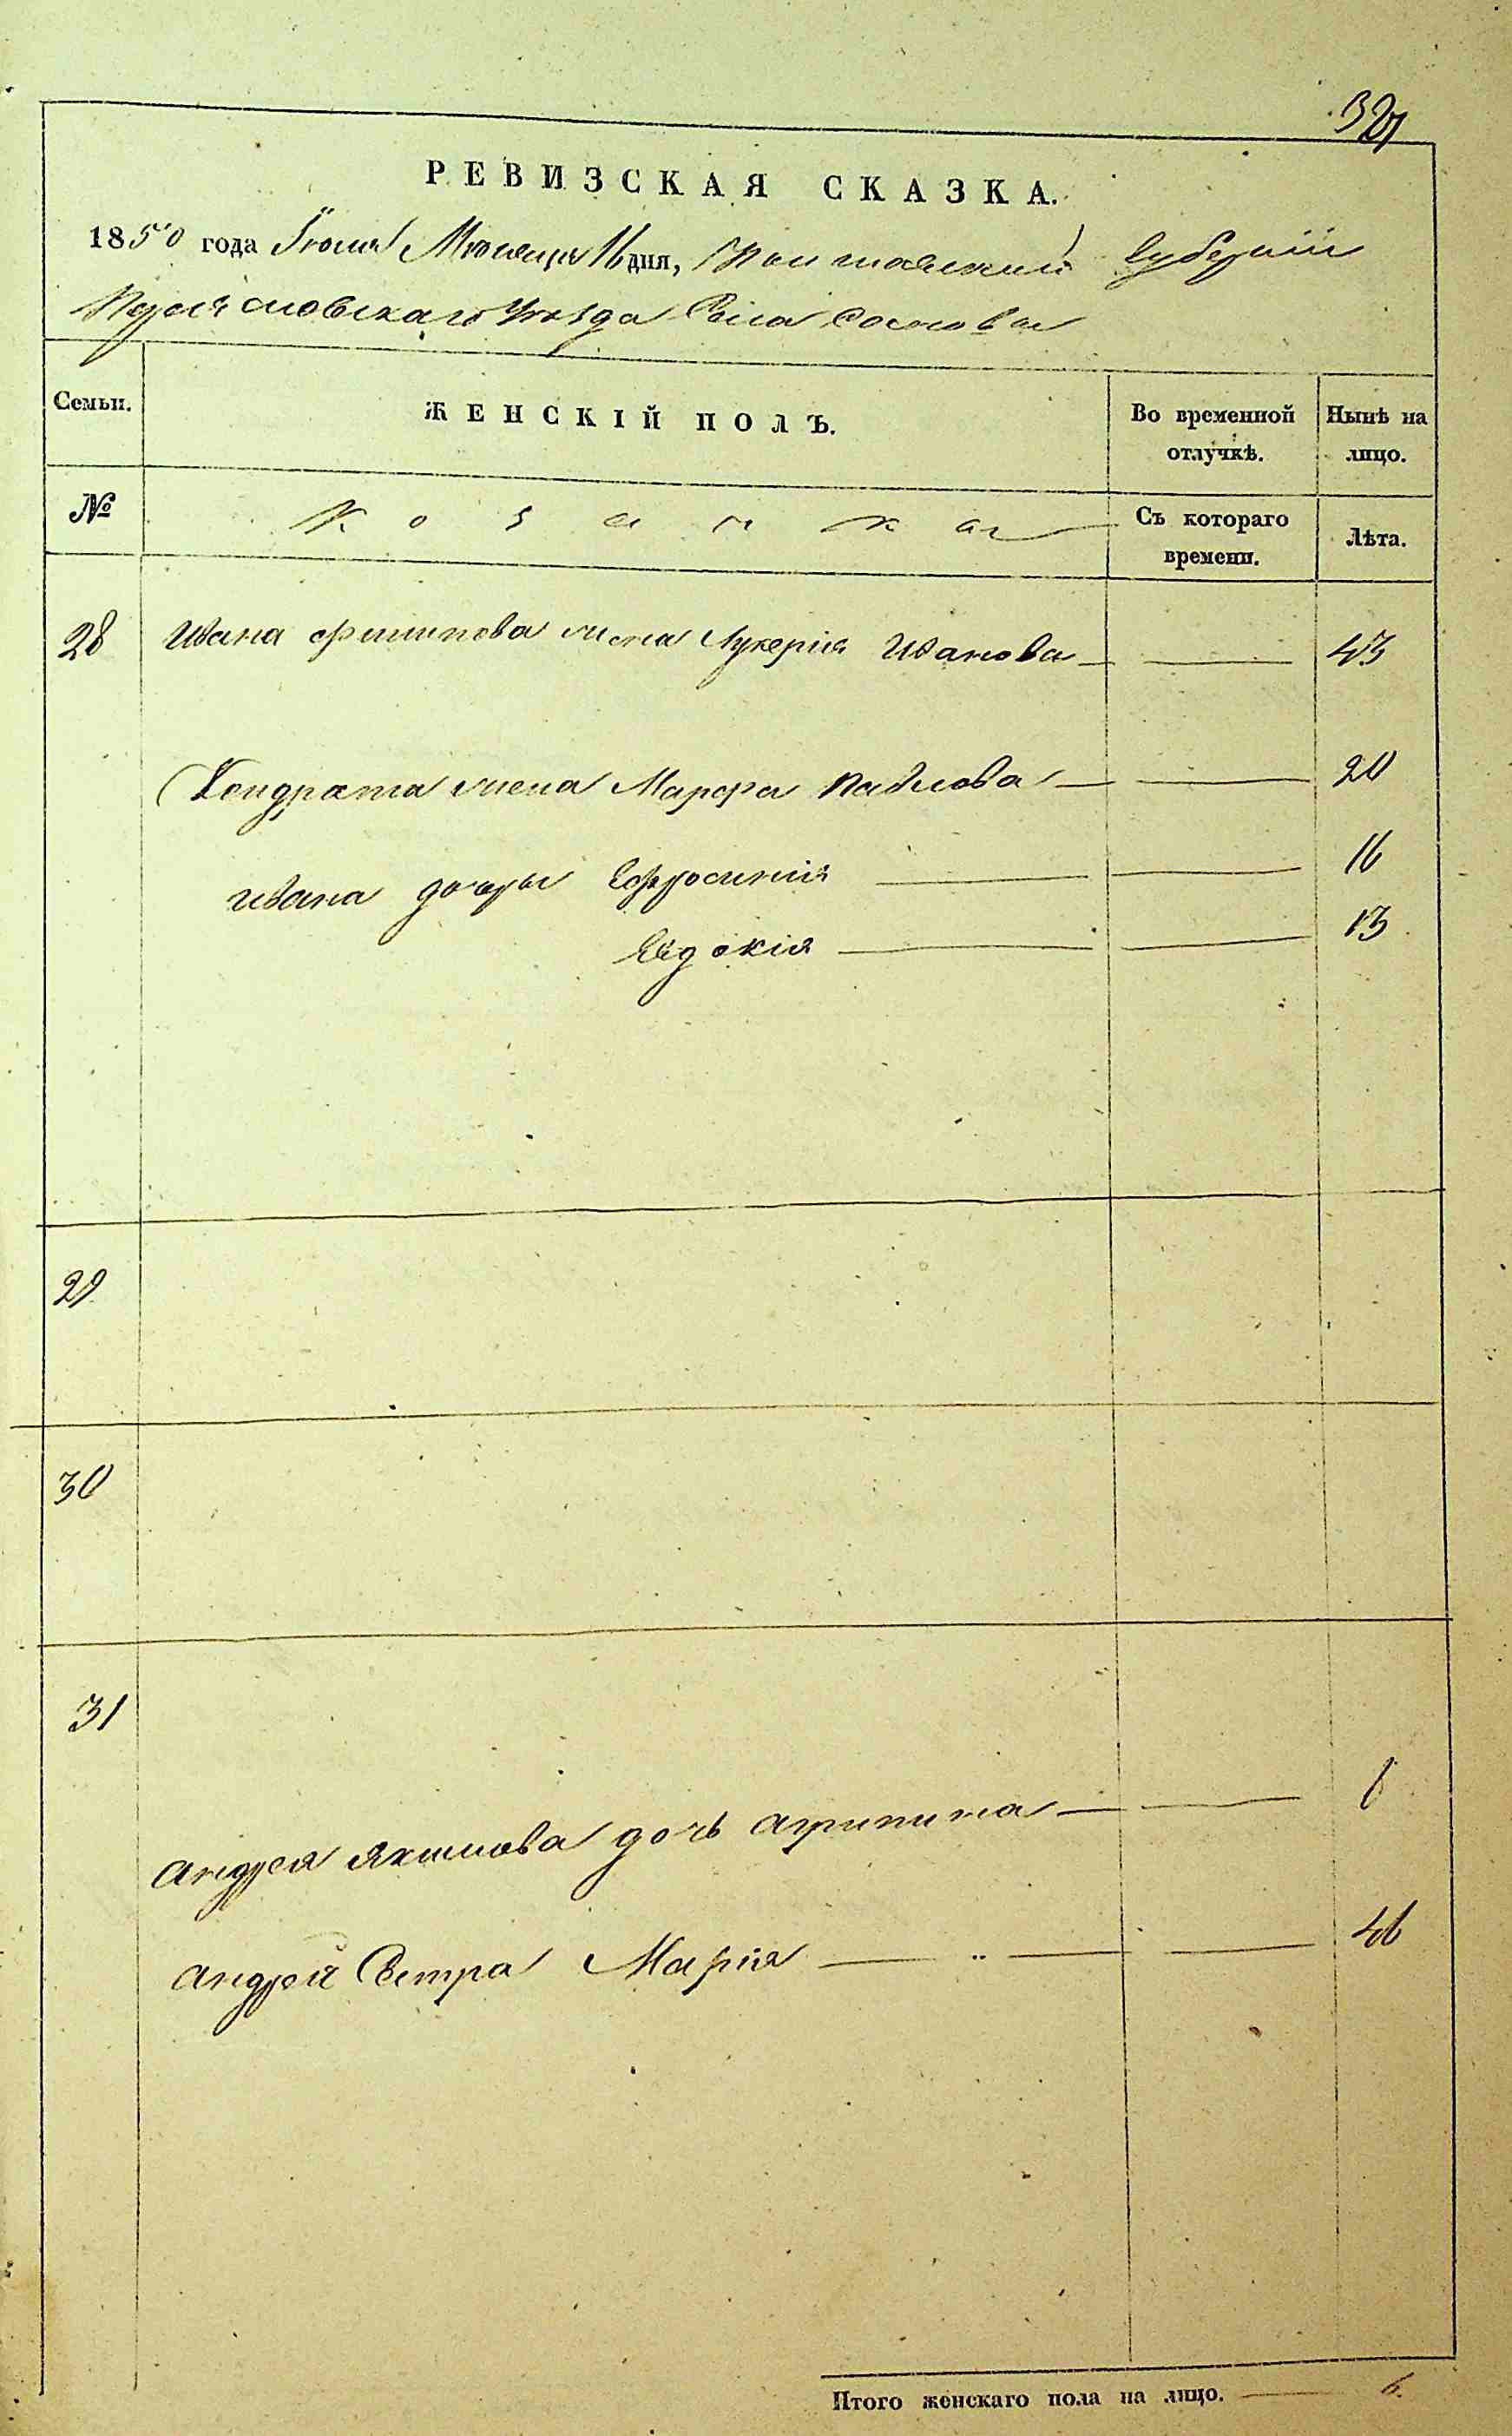 РЕВИЗСКАЯ СКАЗКА.
1850 года Іюня Мѣсяца 16 дня, Полтавской Губерніи
Переяславскаго Уѣзда Села Сосновы
Семьи. ЖЕНСКІЙ ПОЛЪ. Во временной отлучкѣ. Ныне на лицо.
№ Козачка Съ котораго времени. Лѣта.
28 Ивана Филипова жена Лукерія Иванова 43
Кондрата жена Марфа Павлова 20
Ивана дочеры Ефросинія 16
Евдокія 13
29
30
31
Андрея Якимова дочь Агрипина
Андрея Сестра Марія 46
Итого женскаго пола на лицо. 6.